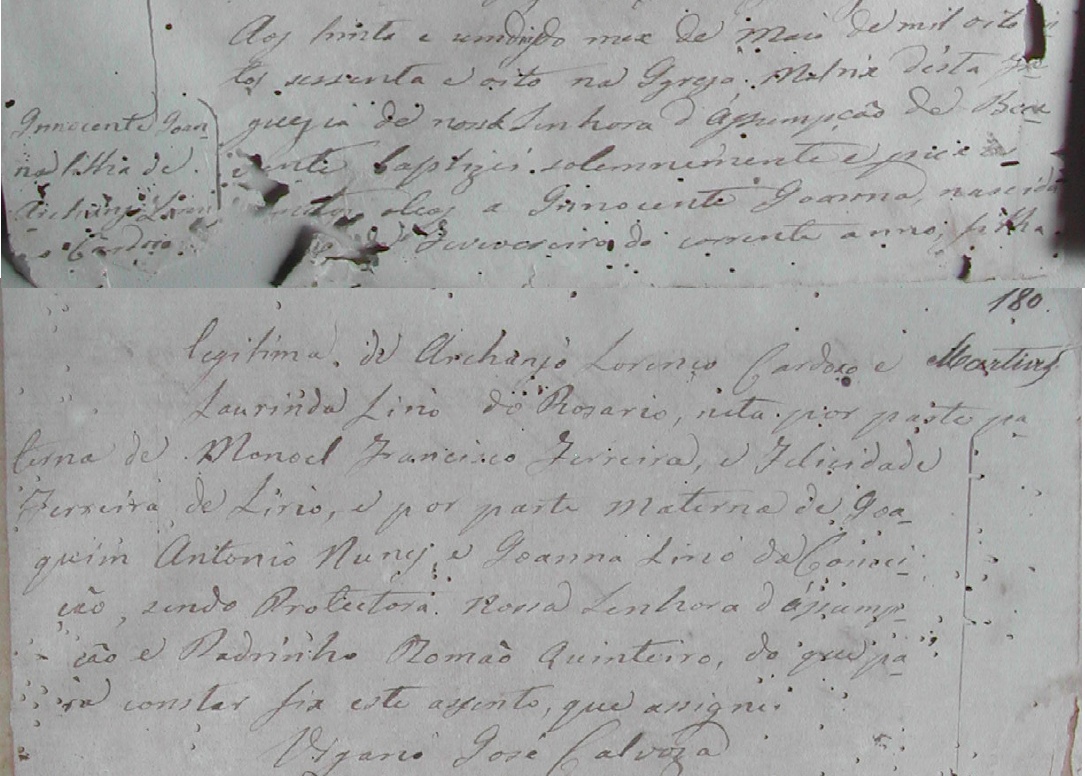 Aos trinta e um do mez de Maio de mil oito
tos sessenta e oito na Igreja Matriz désta Fre
guezia de nossa Senhora d'Assumpção de Bene
vente baptizei solemnemente e puz os
Santos oleos a Innocente Joanna, nascida
Fevevereiro do corrente anno, filha
Innocente Joan
na filha de
Archanjo Loren
o Cardozo
180
Martins
legitima de Archanjo Lorenço Cardozo e
Laurinda Lirio do Rosario, neta por parte pa
terna de Manoel Francisco Ferreira, e Felicidade
Ferreira de Lirio, e por parte Materna de Joa
quim Antonio Nunes e Joanna Lirio da Concei
ção, sendo Protectora Nossa Senhora d'Assump
ção e Padrinho Romaõ Quinteiro, do que pa
ra constar fiz este assento, que assignei
Vigario José Calvoza